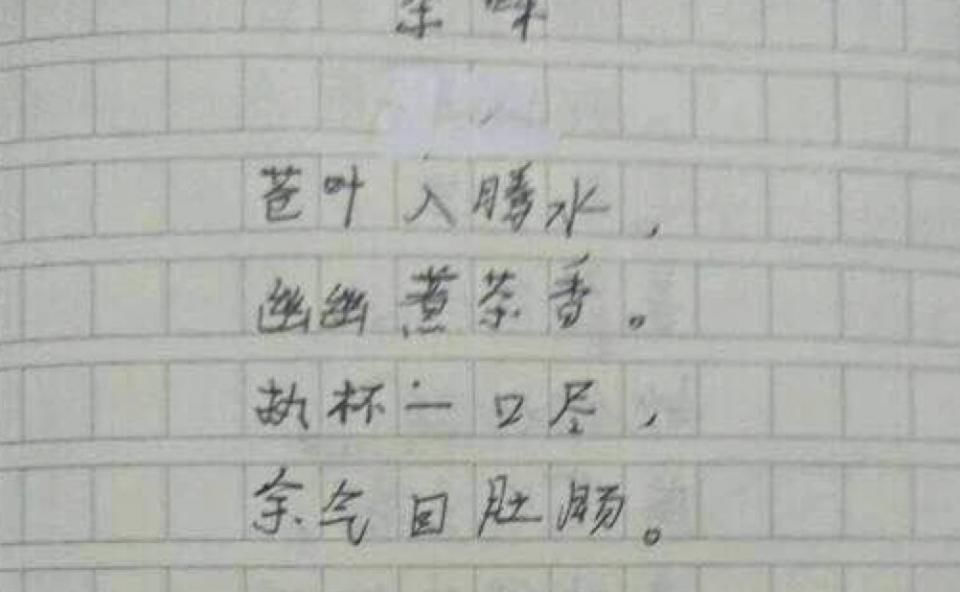 余味
苍叶入腾水，
幽幽煮茶香。
执杯一口尽，
余气回肚肠。